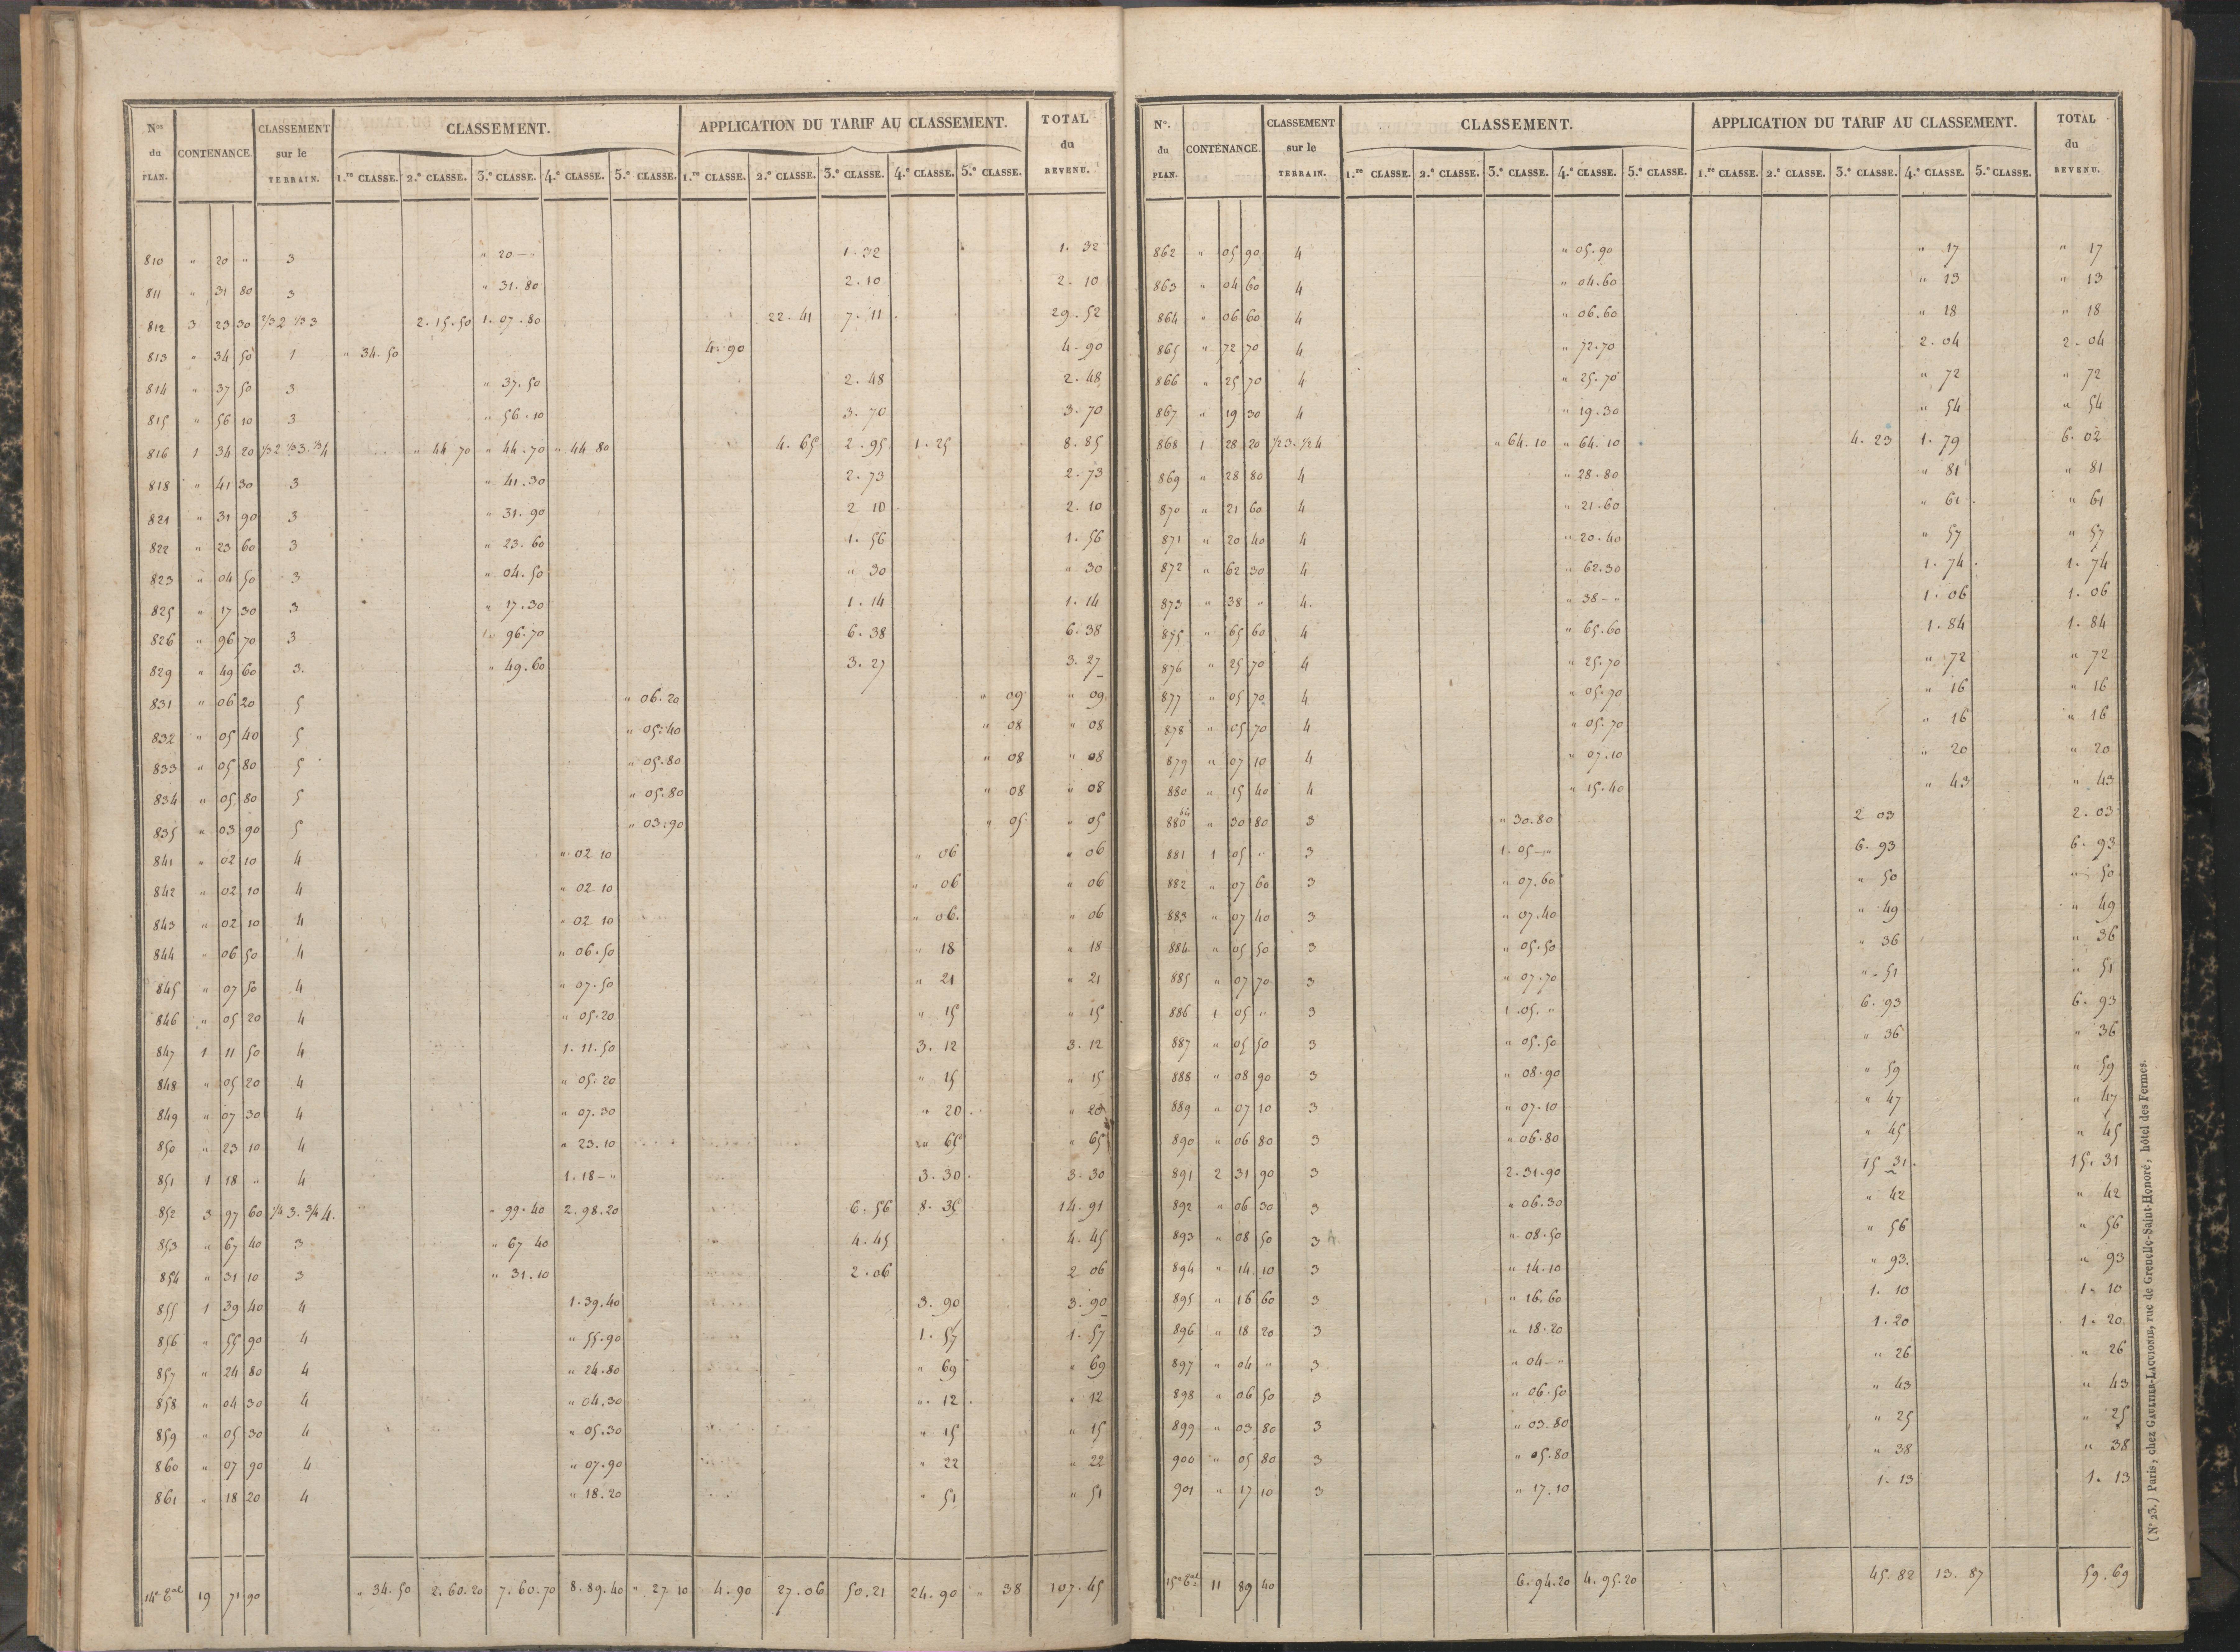 Nos du PLAN. CONTENANCE. CLASSEMENT sur le TERRAIN. CLASSEMENT. APPLICATION DU TARIF AU CLASSEMENT. TOTAL du REVENU.
1.re CLASSE. 2.e CLASSE. 3.e CLASSE. 4.e CLASSE. 5.e CLASSE. 1.re CLASSE. 2.e CLASSE. 3.e CLASSE. 4.e CLASSE. 5.e CLASSE.
810 " 20 " 3 " 20 - " 1. 32 1. 32
811 " 31 80 3 " 31. 80 2. 10 2. 10
812 3 23 30 2/3 2 1/3 3 2. 15. 50 1. 07. 80 22. 41 7. 11 29. 52
813 " 34 50 1 " 34. 50 4. 90 4. 90
814 " 37 50 3 " 37. 50 2. 48 2. 48
815 " 56 10 3 " 56. 10 3. 70 3. 70
816 1 34 20 1/3 2 1/3 3. 1/3 4 " 44 70 " 44. 70 " 44. 80 4. 65 2. 95 1. 25 8. 85
818 " 41 30 3 " 41. 30 2. 73 2. 73
821 " 31 90 3 " 31. 90 2 10 2. 10
822 " 23 60 3 " 23. 60 1. 56 1. 56
823 " 04 50 3 " 04. 50 " 30 " 30
825 " 17 30 3 " 17. 30 1. 14 1. 14
826 " 96 70 3 " 96. 70 6. 38 6. 38
829 " 49 60 3. " 49. 60 3. 27 3. 27
831 " 06 20 5 " 06. 20 " 09 " 09
832 " 05 40 5 " 05. 40 " 08 " 08
833 " 05 80 5 " 05. 80 " 08 " 08
834 " 05 80 5 " 05. 80 " 08 " 08
835 " 03 90 5 " 03. 90 " 05 " 05
841 " 02 10 4 " 02 10 " 06 " 06
842 " 02 10 4 " 02 10 " 06 " 06
843 " 02 10 4 " 02 10 " 06. " 06
844 " 06 50 4 " 06. 50 " 18 " 18
845 " 07 50 4 " 07. 50 " 21 " 21
846 " 05 20 4 " 05. 20 " 15 " 15
847 1 11 50 4 1. 11. 50 3. 12 3. 12
848 " 05 20 4 " 05. 20 " 15 " 15
849 " 07 30 4 " 07. 30 " 20 " 20
850 " 23 10 4 " 23. 10 " 65 " 65
851 1 18 " 4 1. 18 - " 3. 30 3. 30
852 3 97 60 1/4 3. 3/4 4. " 99. 40 2. 98. 20 6. 56 8. 35 14. 91
853 " 67 40 3 " 67 40 4. 45 4. 45
854 " 31 10 3 " 31. 10 2. 06 2 06
855 1 39 40 4 1. 39. 40 3. 90 3. 90
856 " 55 90 4 " 55. 90 1. 57 1. 57
857 " 24 80 4 " 24. 80 " 69 " 69
858 " 04 30 4 " 04. 30 " 12 " 12
859 " 05 30 4 " 05. 30 " 15 " 15
860 " 07 90 4 " 07. 90 " 22 " 22
861 " 18 20 4 " 18. 20 " 51 " 51
14e Tal 19 71 90 " 34. 50 2. 60. 20 7. 60. 70 8. 89. 40 " 27 10 4. 90 27. 06 50. 21 24. 90 " 38 107. 45
No. du PLAN. CONTENANCE. CLASSEMENT sur le TERRAIN. CLASSEMENT. APPLICATION DU TARIF AU CLASSEMENT. TOTAL du REVENU.
1.re CLASSE. 2.e CLASSE. 3.e CLASSE. 4.e CLASSE. 5.e CLASSE. 1.re CLASSE. 2.e CLASSE. 3.e CLASSE. 4.e CLASSE. 5.e CLASSE.
862 " 05 90 4 " 05. 90 " 17 " 17
863 " 04 60 4 " 04. 60 " 13 " 13
864 " 06 60 4 " 06. 60 " 18 " 18
865 " 72 70 4 " 72. 70 2. 04 2. 04
866 " 25 70 4 " 25. 70 " 72 " 72
867 " 19 30 4 " 19. 30 " 54 " 54
868 1 28 20 1/2 3. 1/2 4 " 64. 10 " 64. 10 4. 23 1. 79 6. 02
869 " 28 80 4 " 28. 80 " 81 " 81
870 " 21 60 4 " 21. 60 " 61 " 61
871 " 20 40 4 " 20. 40 " 57 " 57
872 " 62 30 4 " 62. 30 1. 74 1. 74
873 " 38 " 4. " 38 - " 1. 06 1. 06
875 " 65 60 4 " 65. 60 1. 84 1. 84
876 " 25 70 4 " 25. 70 " 72 " 72
877 " 05 70 4 " 05. 70 " 16 " 16
878 " 05 70 4 " 05. 70 " 16 " 16
879 " 07 10 4 " 07. 10 " 20 " 20
880 " 15 40 4 " 15. 40 " 43 " 43
880 bis " 30 80 3 " 30. 80 2 03 2. 03
881 1 05 " 3 1. 05 - " 6. 93 6. 93
882 " 07 60 3 " 07. 60 " 50 " 50
883 " 07 40 3 " 07. 40 " 49 " 49
884 " 05 50 3 " 05. 50 " 36 " 36
885 " 07 70 3 " 07. 70 " 51 " 51
886 1 05 " 3 1. 05. " 6. 93 6. 93
887 " 05 50 3 " 05. 50 " 36 " 36
888 " 08 90 3 " 08. 90 " 59 " 59
889 " 07 10 3 " 07. 10 " 47 " 47
890 " 06 80 3 " 06. 80 " 45 " 45
891 2 31 90 3 2. 31. 90 15 31. 15. 31
892 " 06 30 3 " 06. 30 " 42 " 42
893 " 08 50 3 " 08. 50 " 56 " 56
894 " 14 10 3 " 14. 10 " 93. " 93
895 " 16 60 3 " 16. 60 1. 10 1. 10
896 " 18 20 3 " 18. 20 1. 20 1. 20
897 " 04 " 3 " 04 - " " 26 " 26
898 " 06 50 3 " 06. 50 " 43 " 43
899 " 03 80 3 " 03. 80 " 25 " 25
900 " 05 80 3 " 05. 80 " 38 " 38
901 " 17 10 3 " 17. 10 1. 13 1. 13
15e Tal 11 89 40 6. 94. 20 4. 95. 20 45. 82 13. 87 59. 69
(No 23.) Paris, chez GAULTIER-LAGUIONIE, rue de Grenelle-Saint-Honoré, hôtel des Fermes.